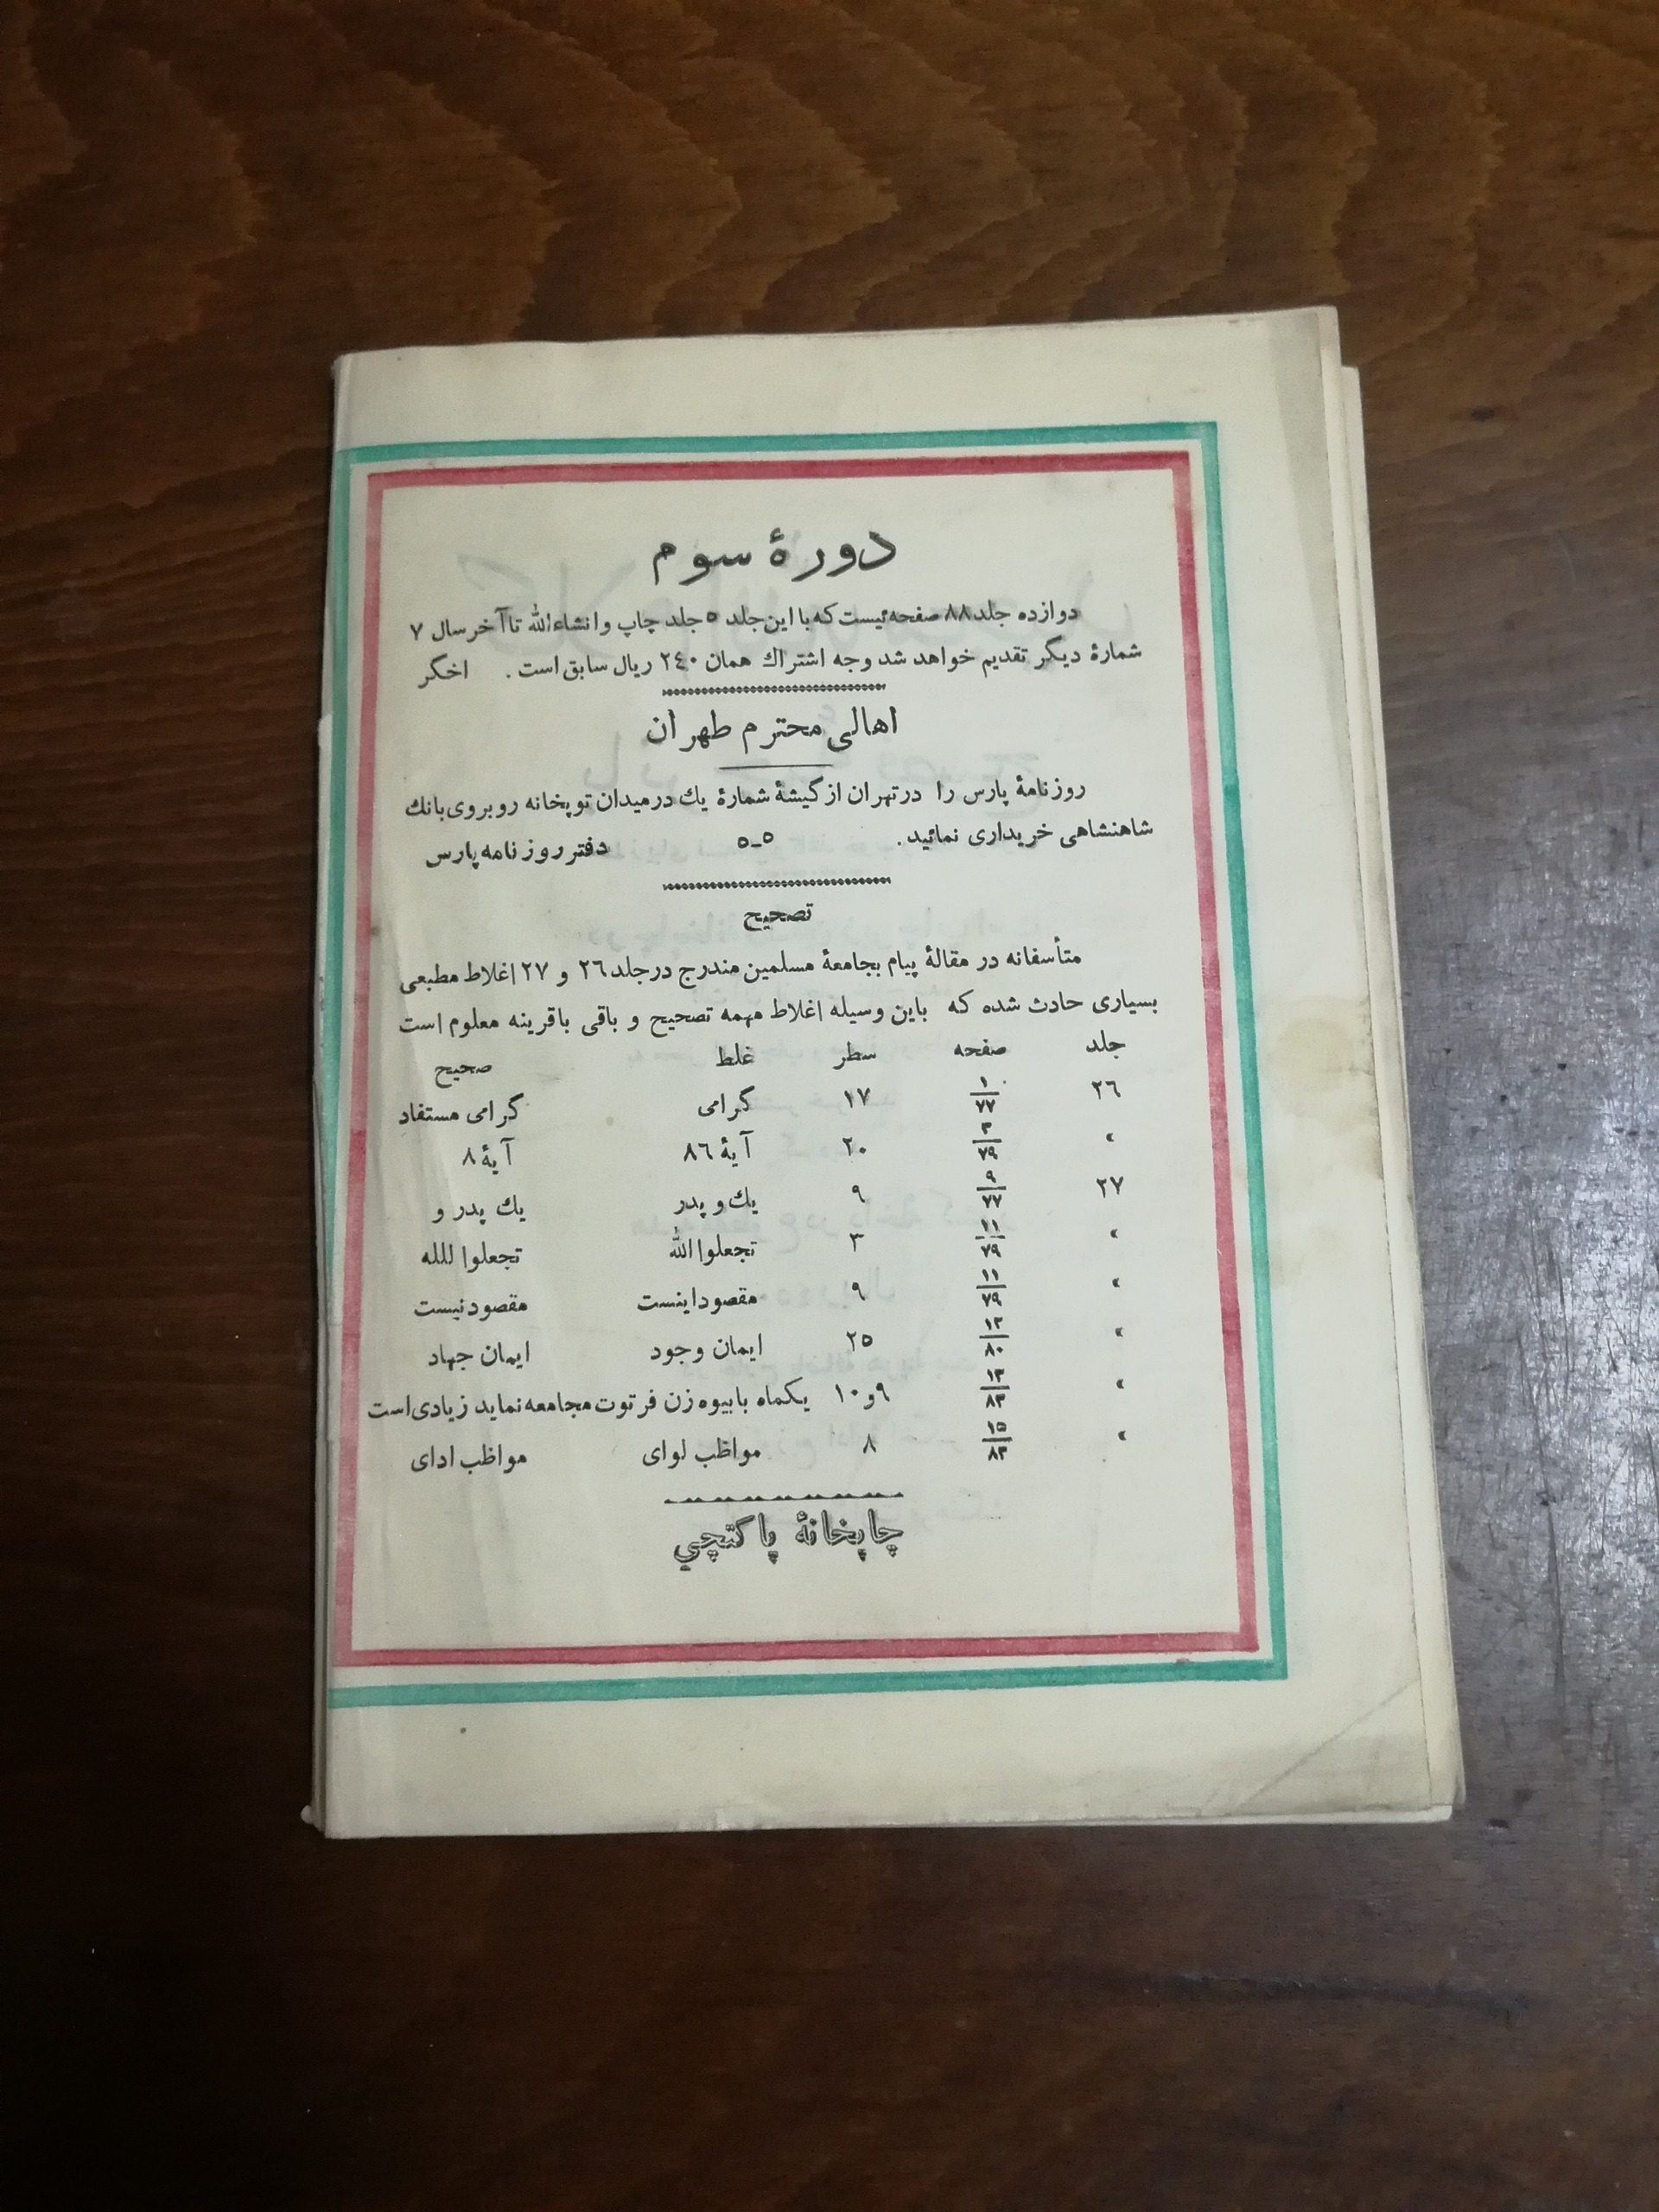 دورهٔ سوم
دوازده جلد ۸۸ صفحه‌ئیست که با این جلد ۵ جلد چاپ و انشاءالله تا آخر سال ۷
شمارهٔ دیگر تقدیم خواهد شد وجه اشتراك همان ۲٤۰ ریال سابق است . اخگر
اهالی محترم طهران
روزنامهٔ پارس را درتهران از گیشهٔ شمارهٔ یك درمیدان توپخانه روبروی بانك
شاهنشاهی خریداری نمائید . ۵-۵ دفتر روزنامه پارس
تصحیح
متأسفانه در مقالهٔ پیام بجامعهٔ مسلمین مندرج در جلد ۲٦ و ۲۷ اغلاط مطبعی
بسیاری حادث شده که باین وسیله اغلاط مهمه تصحیح و باقی باقرینه معلوم است
جلد صفحه سطر غلط صحیح
۲٦ ۱/۷۷ ۱۷ گرامی گرامی مستفاد
« ۳/۷۹ ۲۰ آیهٔ ۸٦ آیهٔ ۸
۲۷ ۹/۷۷ ۹ یك و پدر یك پدر و
« ۱۱/۷۹ ۳ تجعلوا الله تجعلوا لله
« ۱۱/۷۹ ۹ مقصود اینست مقصود نیست
« ۱۲/۸۰ ۲۵ ایمان وجود ایمان جهاد
« ۹و۱۰ یکماه بابیوه زن فرتوت مجامعه نماید زیادی است
« ۱۵/۸۳ ۸ مواظب لوای مواظب ادای
چاپخانهٔ پاکتچی